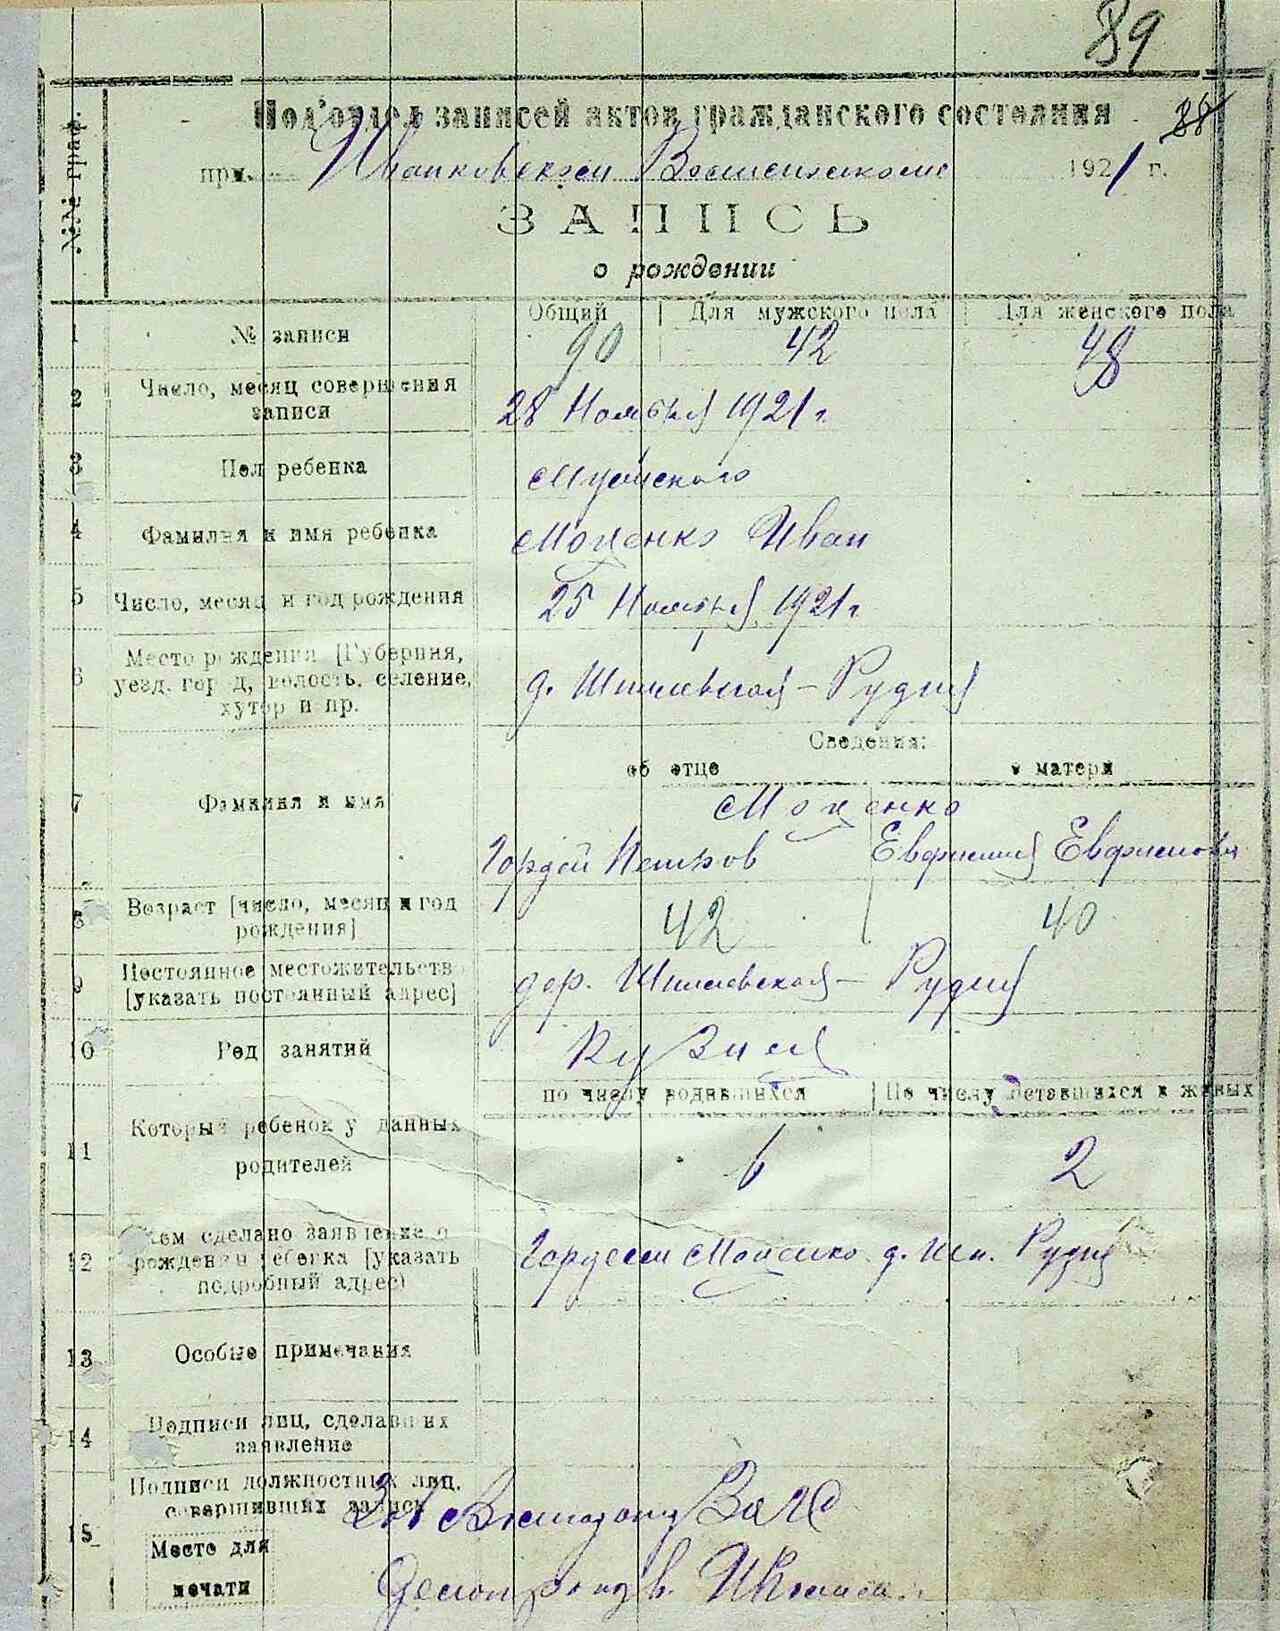 89
Под'отдел записей актов гражданского состояния 88
при Иванковском Волисполкоме 1921 г.
№№ граф.
ЗАПИСЬ
о рождении
Общий Для мужского пола Для женского пола
1 № записи 90 42 48
2 Число, месяц совершения
записи 28 Ноября 1921 г.
3 Пол ребенка Мужского
4 Фамилия и имя ребенка Моценко Иван
5 Число, месяц и год рождения 25 Ноября 1921 г
6 Место рождения [Губерния,
уезд, город, волость, селение,
хутор и пр. д. Шпилевская-Рудня
Сведения:
об отце о матери
7 Фамилия и имя Моценко
Гордей Петров Евфимия Евфимова
8 Возраст [число, месяц и год
рождения] 42 40
9 Постоянное местожительство
[указать постоянный адрес] дер. Шпилевская- Рудня
10 Род занятий Кузнец
по числу родившихся По числу оставшихся в живых
11 Который ребенок у данных
родителей 6 2
12 Кем сделано заявление о
рождении ребенка [указать
подробный адрес) Гордеем Моценко д. Шп. Рудня
13 Особые примечания
14 Подписи лиц, сделавших
заявление
15 Подписи должностных лиц,
совершивших запись
Место для
печати